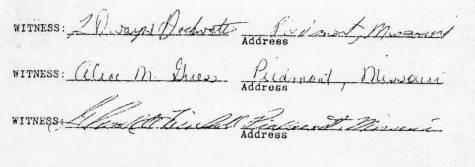 WITNESS: Piedmont, Missouri
Address
WITNESS: Alice M. Guess Piedmont, Missouri
Address
WITNESS: Piedmont, Missouri
Address